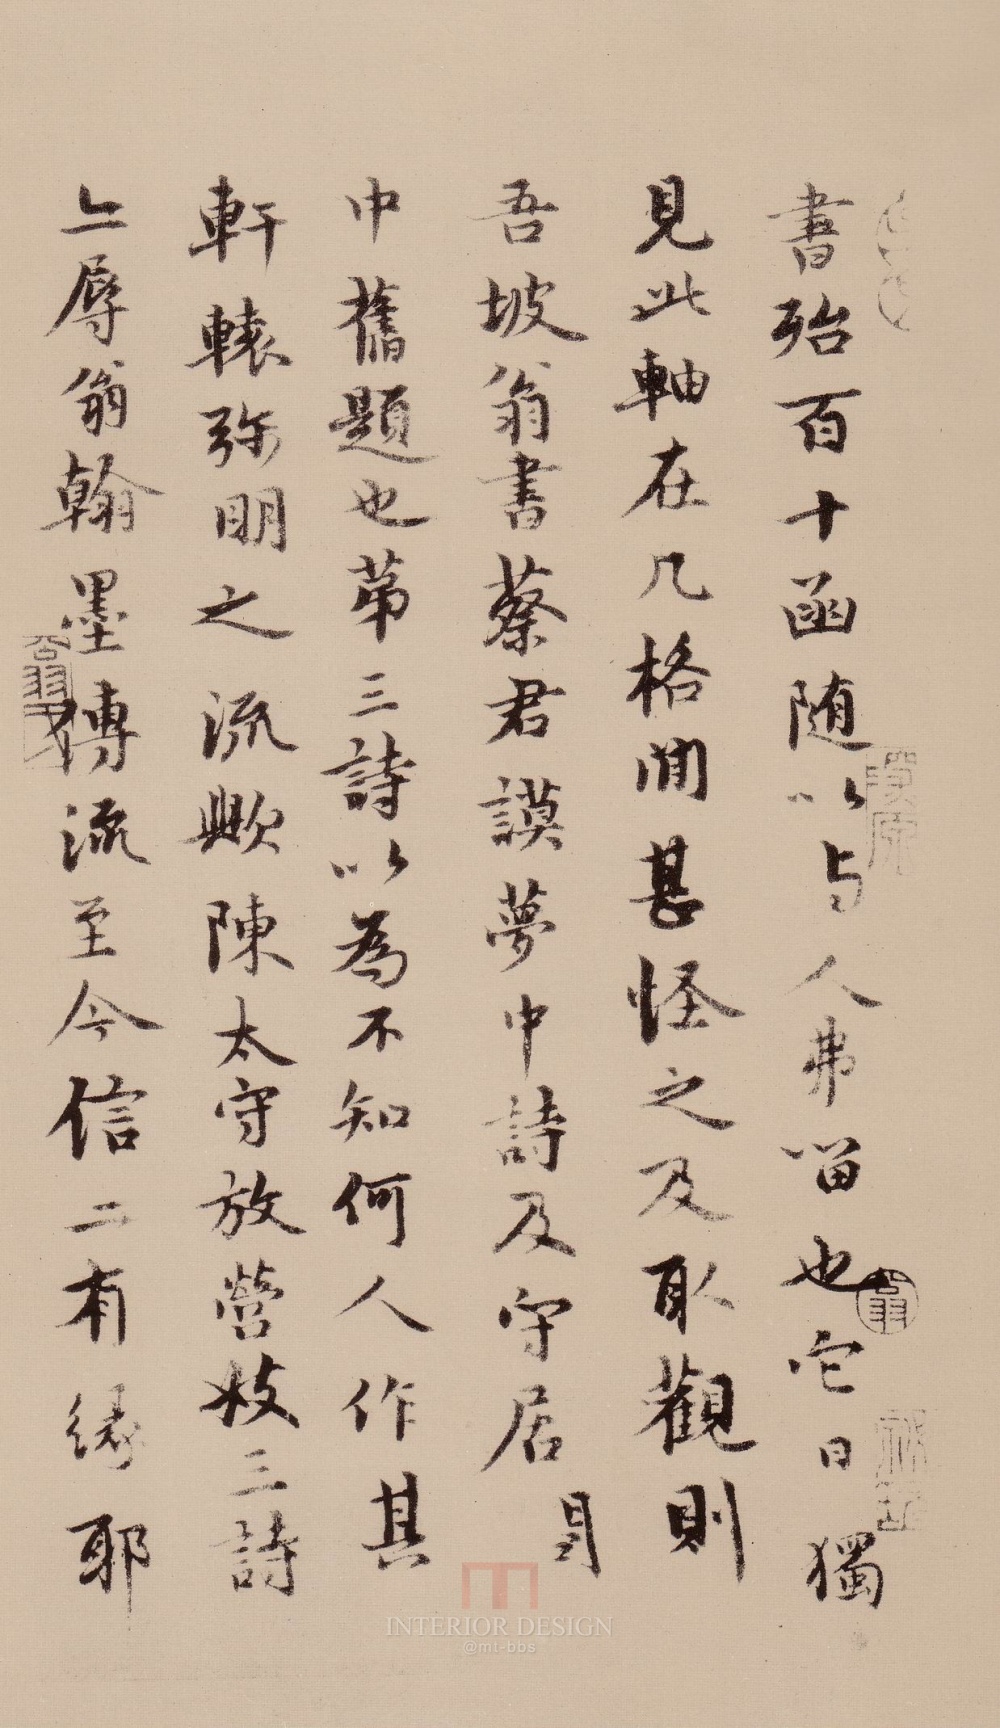 書殆百十函随以与人弗留也它日獨
見此軸在几格間甚怪之及取觀則
吾坡翁書蔡君謨夢中詩及守居閣
中舊題也第三詩以為不知何人作其
軒轅弥明之流歟陳太守放營妓三詩
亦辱翁翰墨傳流至今信亦有緣耶
INTERIOR DESIGN
@mt-bbs